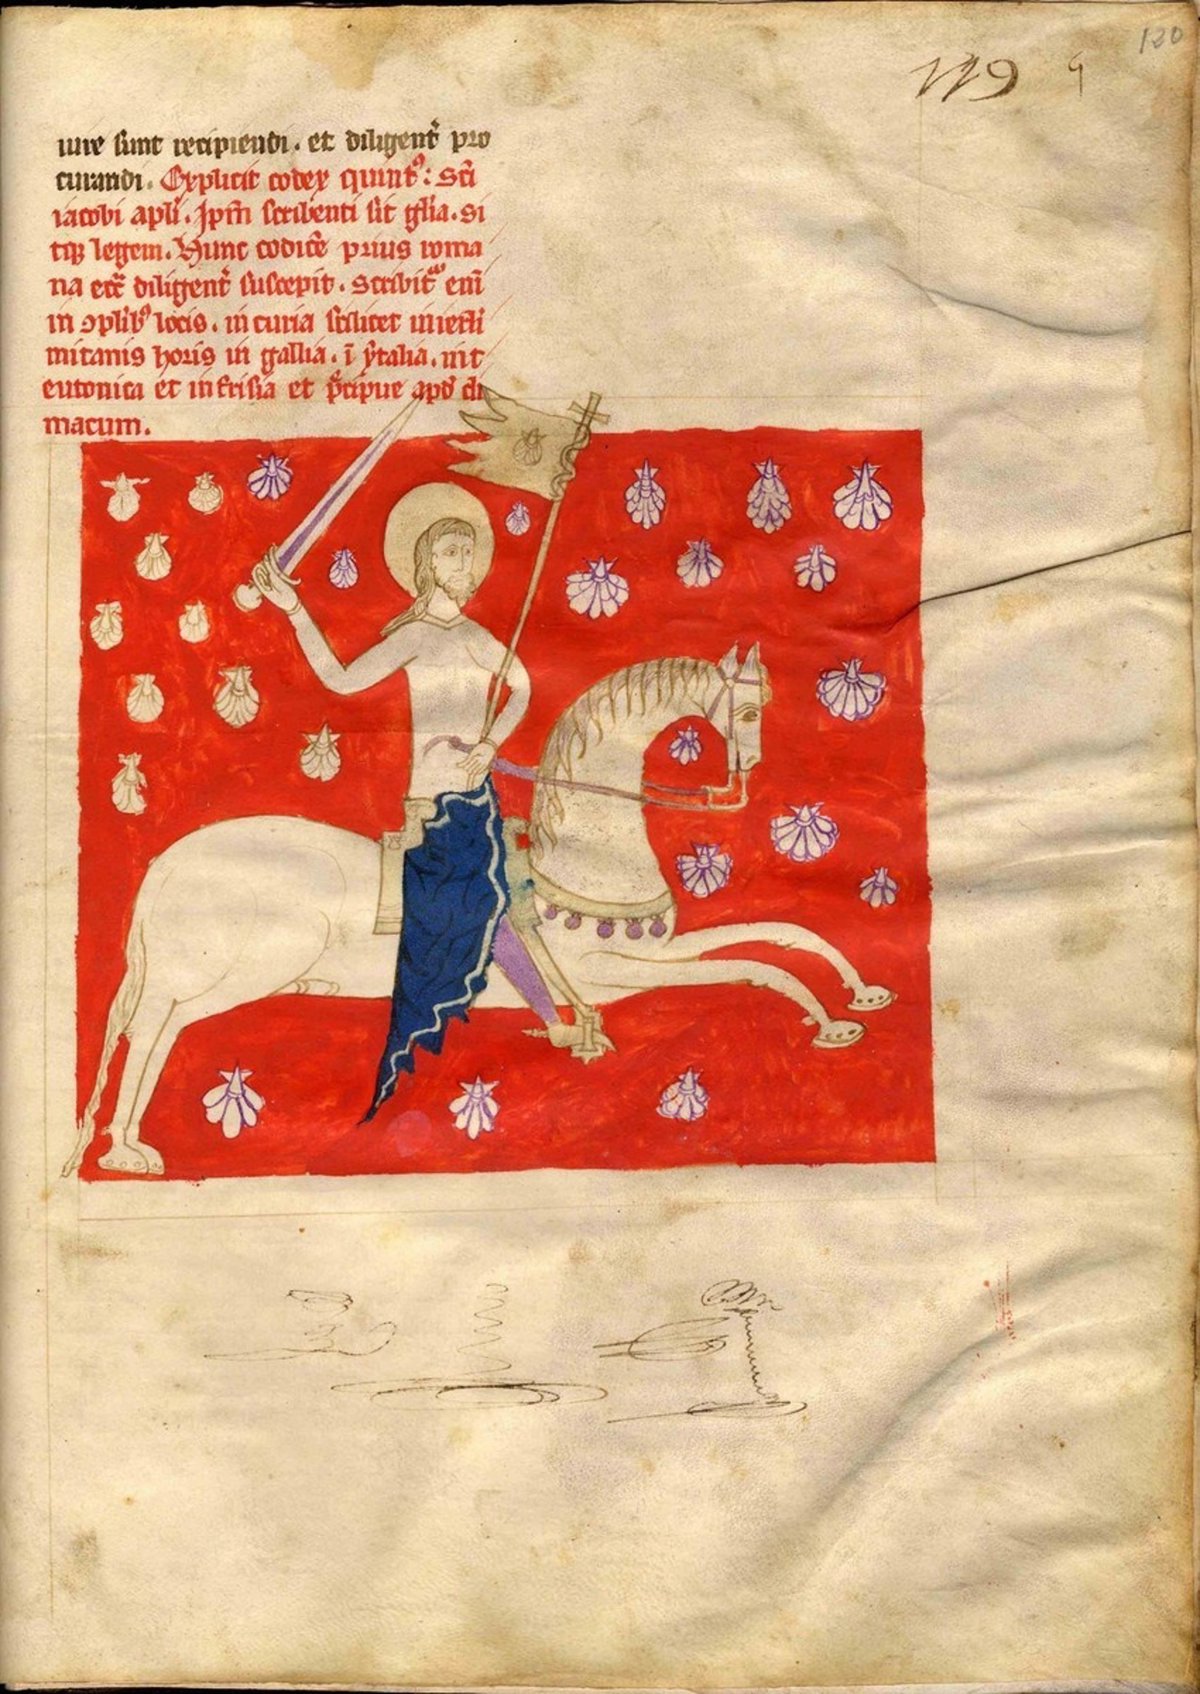 120
119
iure sunt recipiendi. et diligent̃ pro
curandi. Explicit codex quintꝰ: Sc̃i
iacobi apl̃i. Ip̃m scribenti sit gl̃ia. si
tqȝ legem. Hunc codicẽ prius roma
na ecc̃ diligent̃ suscepit. Scribit᷑ eni᷑
in ↄplibꝰ locis. in curia scilicet
mitanis horis in gallia. ĩ ẏtalia.
eutonica et in frisia et p̃cipue apd̕ cli
niacum.